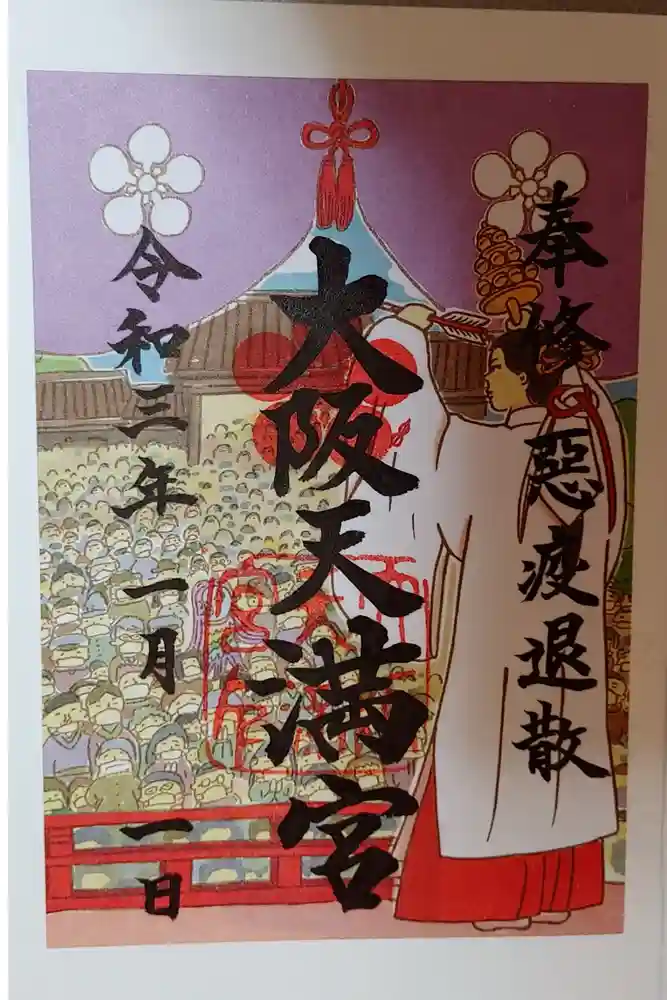 奉修 惡疫退散
大阪天満宮
令和三年一月一日